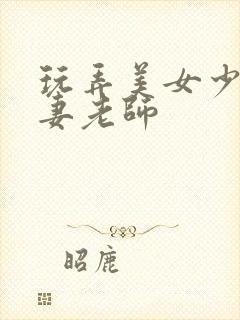 玩弄美女少
妻老师
昭鹿